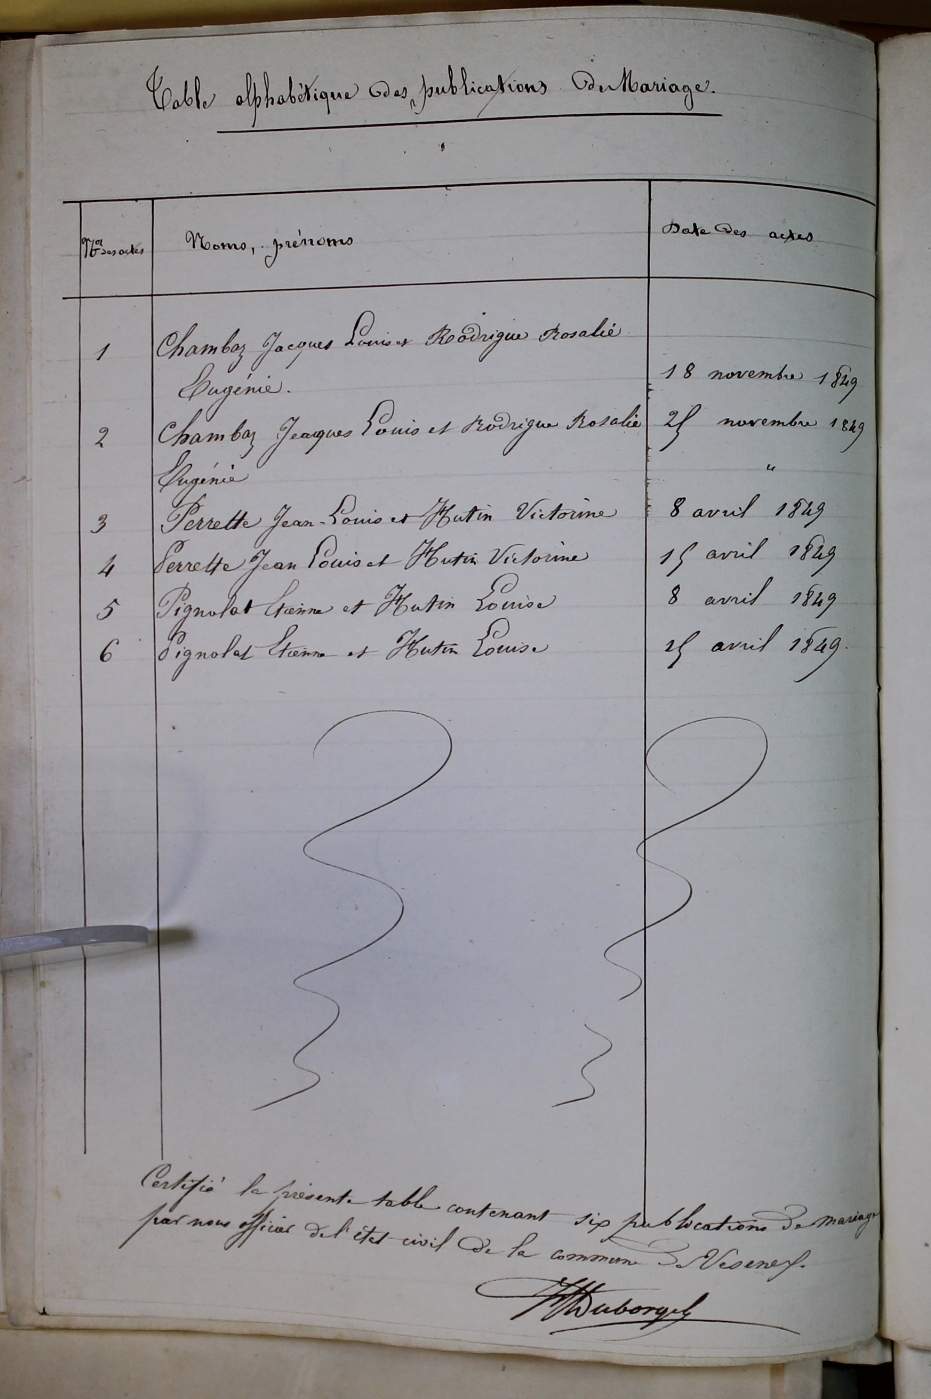 Table alphabétique des publications de Mariage.
Nos des actes Noms, prénoms Date des actes
1 Chambaz Jacques Louis et Rodrigue Rosalie
Eugénie. 18 novembre 1849
2 Chambaz Jeacques Louis et Rodrigue Rosalie 25 novembre 1849
Eugénie "
3 Perrette Jean-Louis et Hutin Victorine 8 avril 1849
4 Perrette Jean Louis et Hutin Victorine 15 avril 1849
5 Pignolat Etienne et Hutin Louise 8 avril 1849
6 Pignolat Etienne et Hutin Louise 15 avril 1849.
Certifié la présente table contenant six publications de mariage
par nous officier de l'état civil de la commune de Vesenex.
Duborgel